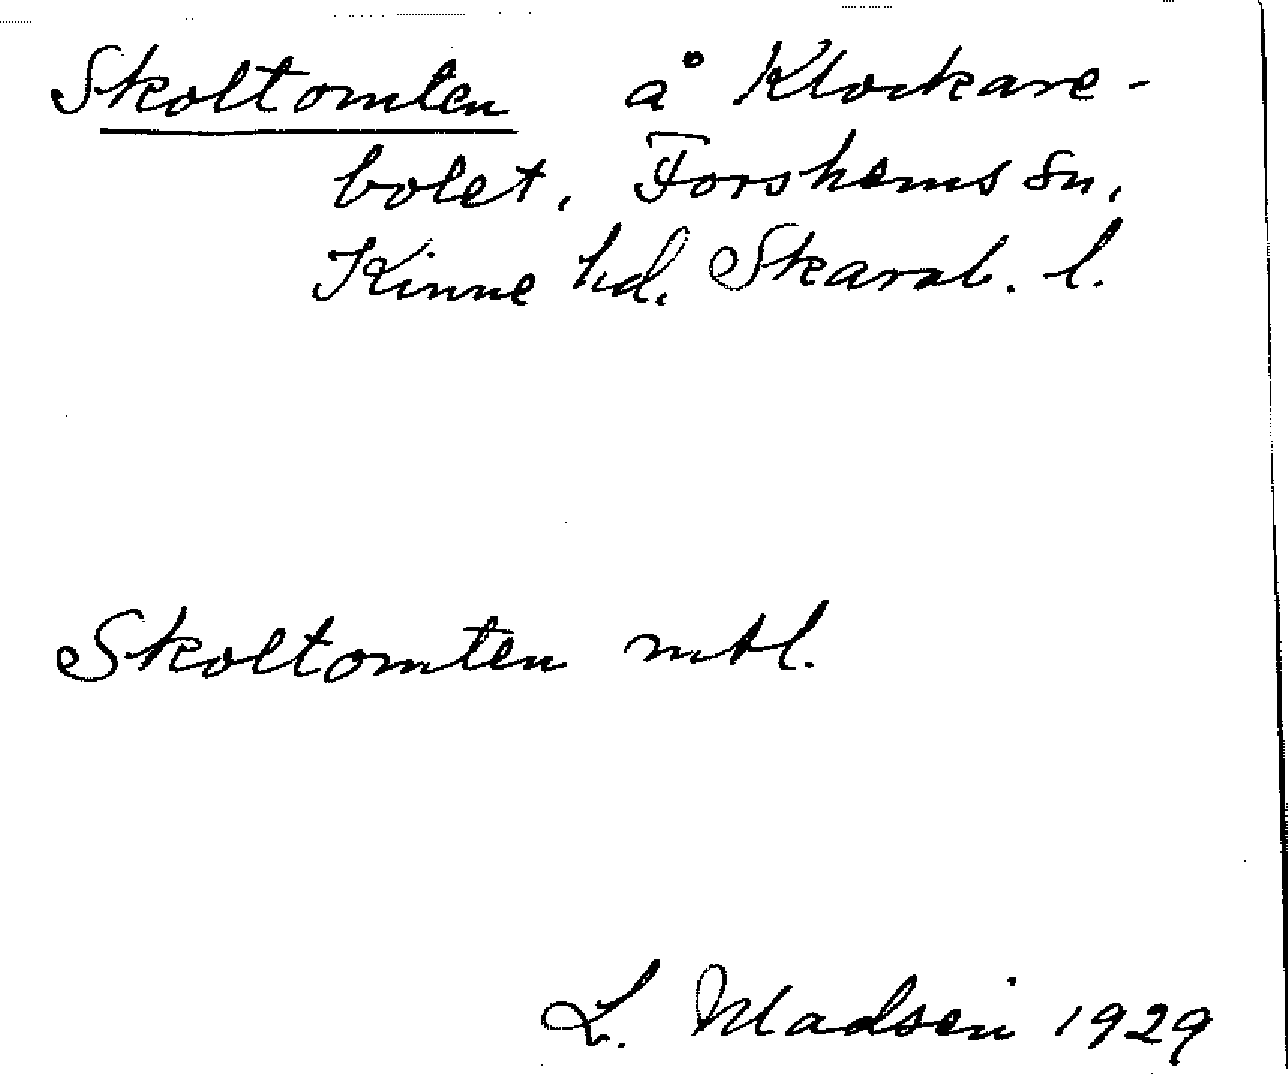 Skoltomten å Klockare-
bolet, Forshems sn,
Kinne hd. Skarab. l.
Skoltomten mtl.
L. Madsén 1929